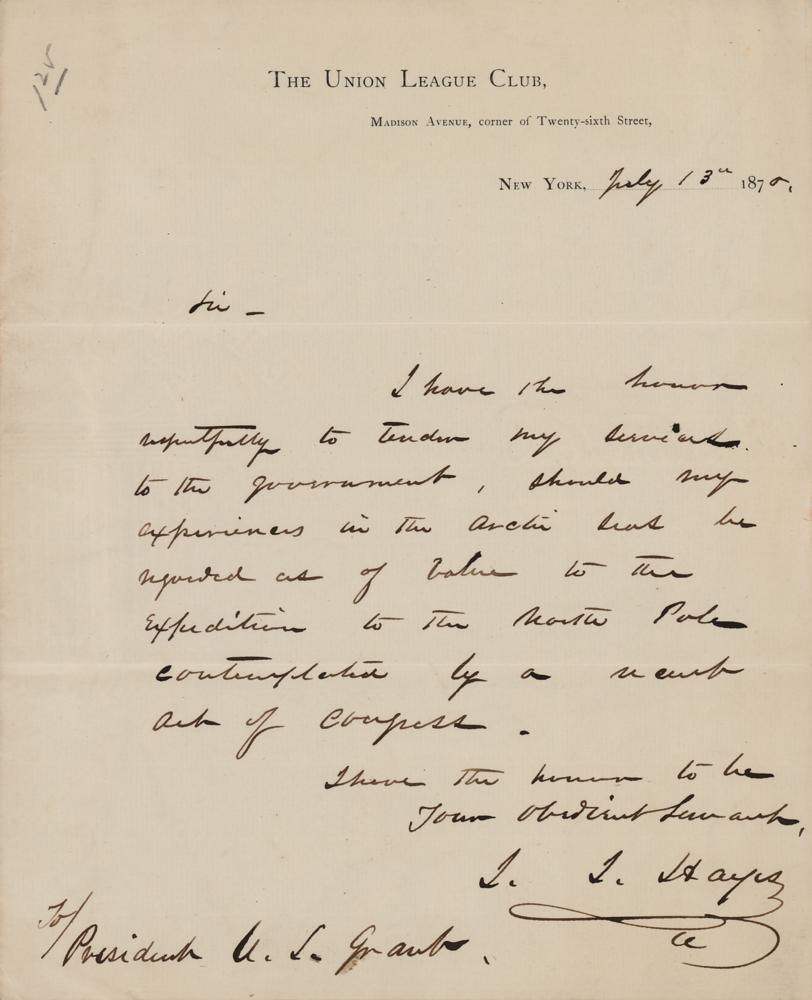 125
THE UNION LEAGUE CLUB,
MADISON AVENUE, corner of Twenty-sixth Street,
NEW YORK, July 13th 1870.
Sir —
I have the honor
respectfully to tender my services
to the government, should my
experiences in the Arctic seas be
regarded as of value to the
Expedition to the North Pole
contemplated by a recent
act of Congress.
I have the honor to be
Your Obedient Servant,
I. I. Hayes
To/
President U. S. Grant.